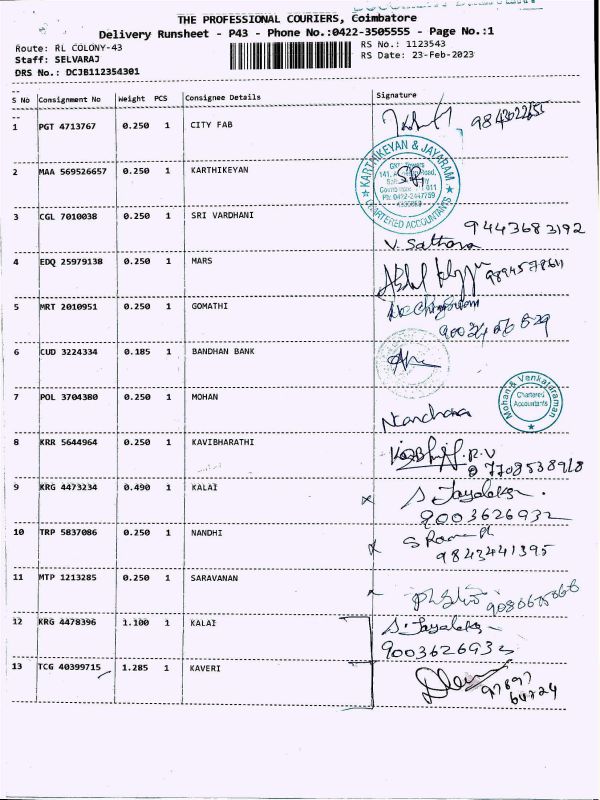 THE PROFESSIONAL COURIERS, Coimbatore
Delivery Runsheet - P43 - Phone No.:0422-3505555 - Page No.:1
Route: RL COLONY-43 RS No.: 1123543
Staff: SELVARAJ RS Date: 23-Feb-2023
DRS No.: DCJB112354301
S No Consignment No Weight PCS Consignee Details Signature
1 PGT 4713767 0.250 1 CITY FAB
KARTHIKEYAN & JAYARAM
CHARTERED ACCOUNTANTS
2 MAA 569526657 0.250 1 KARTHIKEYAN
3 CGL 7010038 0.250 1 SRI VARDHANI 9443683192
V. Sathara
4 EDQ 25979138 0.250 1 MARS
5 MRT 2010951 0.250 1 GOMATHI
6 CUD 3224334 0.185 1 BANDHAN BANK
7 POL 3704380 0.250 1 MOHAN
Mohan & Venkataraman
Chartered
Accountants
8 KRR 5644964 0.250 1 KAVIBHARATHI
7708538918
9 KRG 4473234 0.490 1 KALAI
9003626932
10 TRP 5837086 0.250 1 NANDHI
9843441395
11 MTP 1213285 0.250 1 SARAVANAN
12 KRG 4478396 1.100 1 KALAI
9003626932
13 TCG 40399715 1.285 1 KAVERI
97897
64724